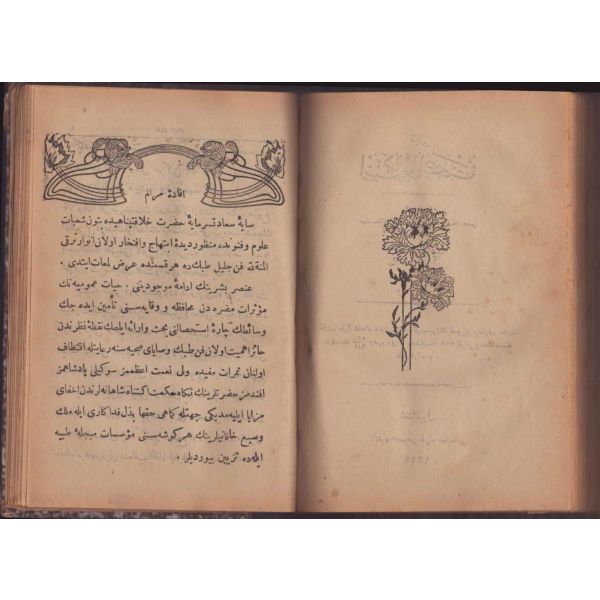 افادهٔ مرام
سایهٔ سعادتسرمایهٔ حضرت خلافتپناهیده بتون شعبات
علوم وفنونده منظور دیدهٔ ابتهاج وافتخار اولان آنوار ترقی
المنة لله فن جلیل طبك ده هر قسمنده عرض لمعات ایتدی .
عنصر بشریتك ادامهٔ موجودیتی . حیات عمومیه نك
مؤثرات مضره دن محافظه و وقایه سنی تأمین ایده جك
وسائطك چارهٔ استحصالنی بحث وارائه ایلمك نقطهٔ نظرندن
حائز اهمیت اولان فن طبك وصایای صحیه سنه رعایتله اقتطاف
اولنان ثمرات مفیده ولی نعمت اعظممز سوكیلی پادشاهمز
افندمز حضرتلرینك نكاه حكمت اكتناه شاهانه لرندن اخفای
مزایا ایلیه مدیكی جهتله كماهی حقها بذل فداكاری ایله ملك
وسیع خاقانیلرینك هر كوشه سنی مؤسسات مبجلهٔ طبیه
ایله ده تزیین بیوردیلر .